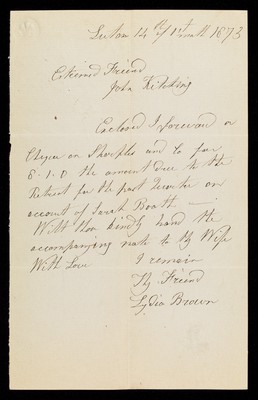 Luton 14th of 1st month 1873
Esteemed Friend
John Kitching
Enclosed I forward a
Cheque on Sharples and Co for
8.1.0 the amount due to the
Retreat for the past Quarter on
account of Sarah Booth —
Wilt thou kindly hand the
accompanying note to thy Wife
With Love I remain
Thy Friend
Lydia Brown